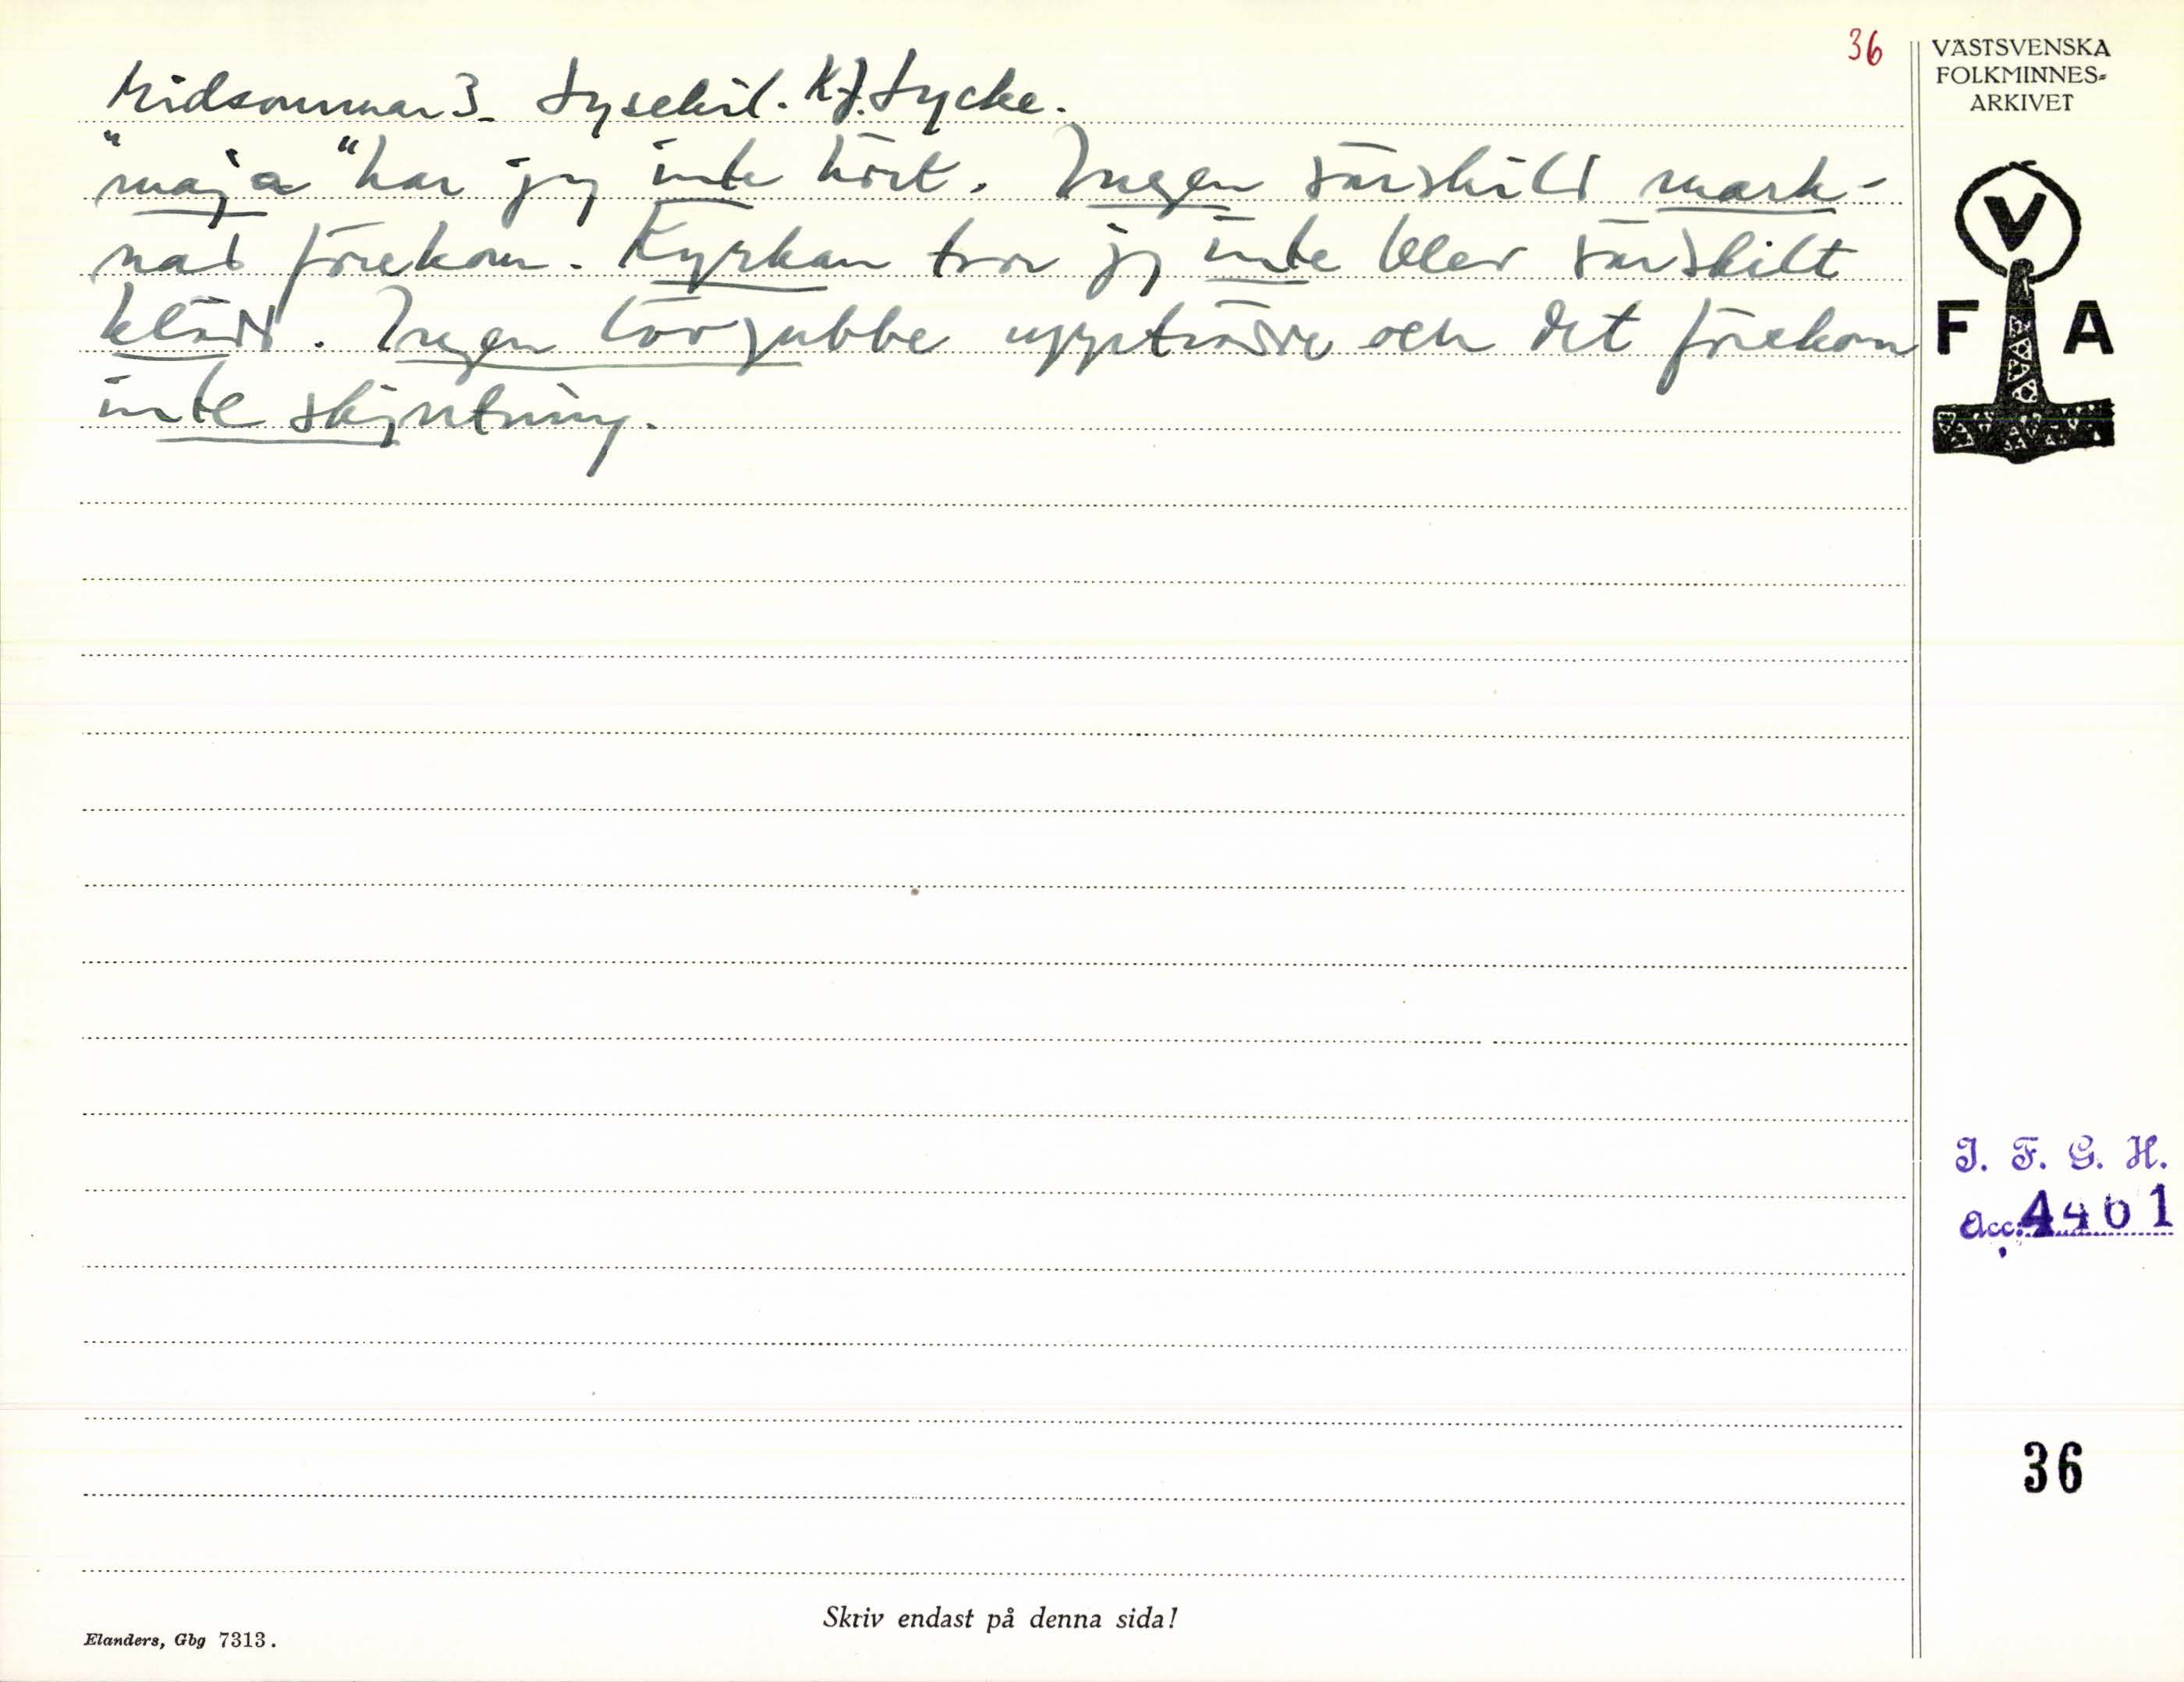 36
VÄSTSVENSKA
FOLKMINNES-
ARKIVET
Midsommar 3. Lysekil. K.J. Lycke.
"maja" har jag inte hört. Ingen särskild mark-
nad förekom. Kyrkan tror jag inte blev särskilt
klädd. Ingen lövgubbe uppträdde och det förekom
inte skjutning.
V
F A
I. F. G. H.
Acc: 4461
36
Skriv endast på denna sida!
Elanders, Gbg 7313.